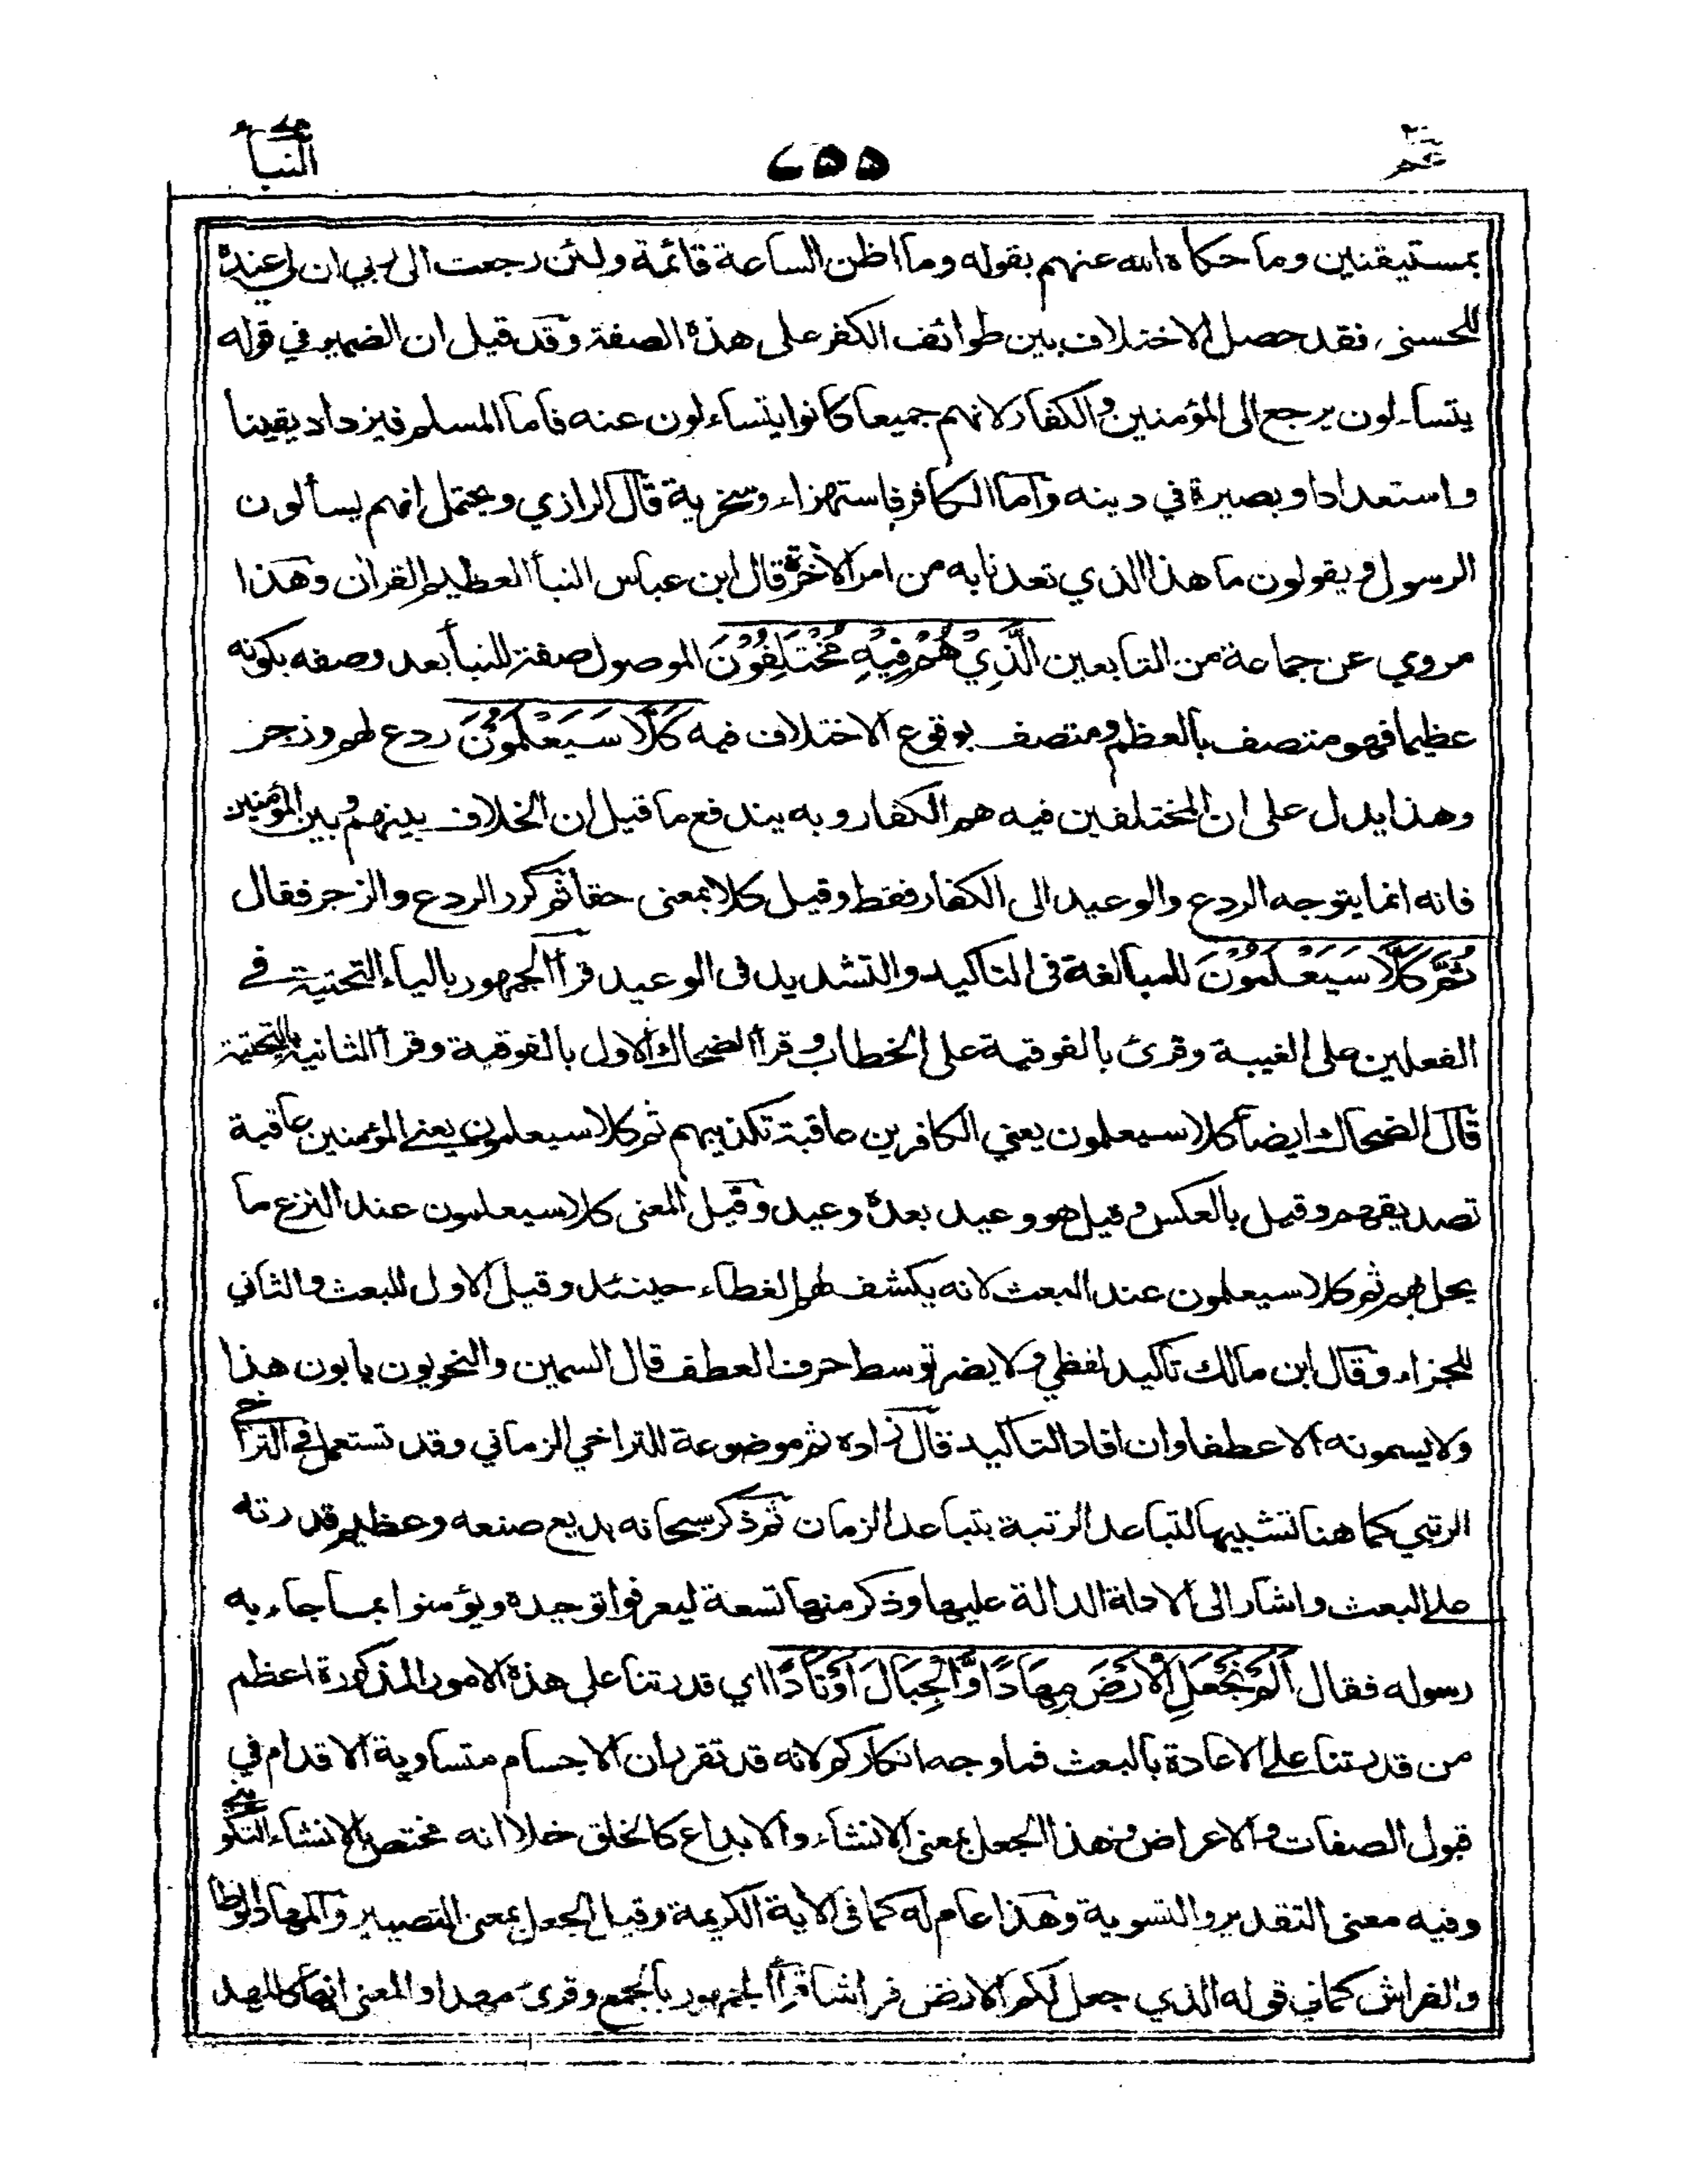 عم ٣٠
٢٥٥
النبأ ٧٨
بمستيقنين وما حكاه الله عنهم بقوله وما اظن الساعة قائمة ولئن رجعت الى ربي ان لي عنده
للحسنى، فقد حصل الاختلاف بين طوائف الكفر على هذه الصفة وقد قيل ان الضمير في قوله
يتساءلون يرجع الى المؤمنين والكفار لانهم جميعا كانوا يتساءلون عنه فاما المسلم فيزداد يقينا
واستعدادا وبصيرة في دينه واما الكافر فاستهزاء وسخرية قال الرازي ويحتمل انهم يسألون
الرسول ويقولون ما هذا الذي تعدنا به من امر الآخرة قال ابن عباس النبأ العظيم القرآن وهذا
مروي عن جماعة من التابعين الَّذِيْ هُمْ فِيْهِ مُخْتَلِفُوْنَ الموصول صفة للنبأ بعد وصفه بكونه
عظيما فهو متصف بالعظم ومتصف بوقوع الاختلاف فيه كَلَّا سَيَعْلَمُوْنَ ردع لهم وزجر
وهذا يدل على ان المختلفين فيه هم الكفار وبه يندفع ما قيل ان الخلاف بينهم وبين المؤمنين
فانه انما يتوجه الردع والوعيد الى الكفار فقط وقيل كلا بمعنى حقا ثم كرر الردع والزجر فقال
ثُمَّ كَلَّا سَيَعْلَمُوْنَ للمبالغة فى التاكيد والتشديد فى الوعيد قرأ الجمهور بالياء التحتية في
الفعلين على الغيبة وقرئ بالفوقية على الخطاب وقرأ الضحاك الاول بالفوقية وقرأ الثانية بالتحتية
قال الضحاك ايضا كلا سيعلمون يعني الكافرين عاقبة تكذيبهم ثم كلا سيعلمون يعني المؤمنين عاقبة
تصديقهم وقيل بالعكس وقيل هو وعيد بعده وعيد وقيل المعنى كلا سيعلمون عند النزع ما
يحل بهم ثم كلا سيعلمون عند البعث لانه يكشف لهم الغطاء حينئذ وقيل الاول للبعث والثاني
للجزاء وقال ابن مالك تاكيد لفظي ولا يضر توسط حرف العطف قال السمين والنحويون يابون هذا
ولا يسمونه الا عطفا وان افاد التاكيد قال زاده ثم موضوعة للتراخي الزماني وقد تستعمل في التراخي
الرتبي كما هنا تشبيها لتباعد الرتبة بتباعد الزمان ثم ذكر سبحانه بديع صنعه وعظيم قدرته
على البعث واشار الى الادلة الدالة عليها وذكر منها تسعة ليعرفوا توحيده ويؤمنوا بما جاء به
رسوله فقال اَلَمْ نَجْعَلِ الْاَرْضَ مِهَادًا وَّالْجِبَالَ اَوْتَادًا اي قدرتنا على هذه الامور المذكورة اعظم
من قدرتنا على الاعادة بالبعث فما وجه انكاركم لانه قد تقرر ان الاجسام متساوية الاقدام في
قبول الصفات والاعراض وهذا الجعل بمعنى الانشاء والابداع كالخلق خلا انه مختص بالانشاء التكويني
وفيه معنى التقدير والتسوية وهذا عام له كما فى الآية الكريمة وقيل الجعل بمعنى التصيير والمهاد الوطا
والفراش كما في قوله الذي جعل لكم الارض فراشا قرأ الجمهور بالجمع وقرئ مهدا والمعنى انها كالمهد